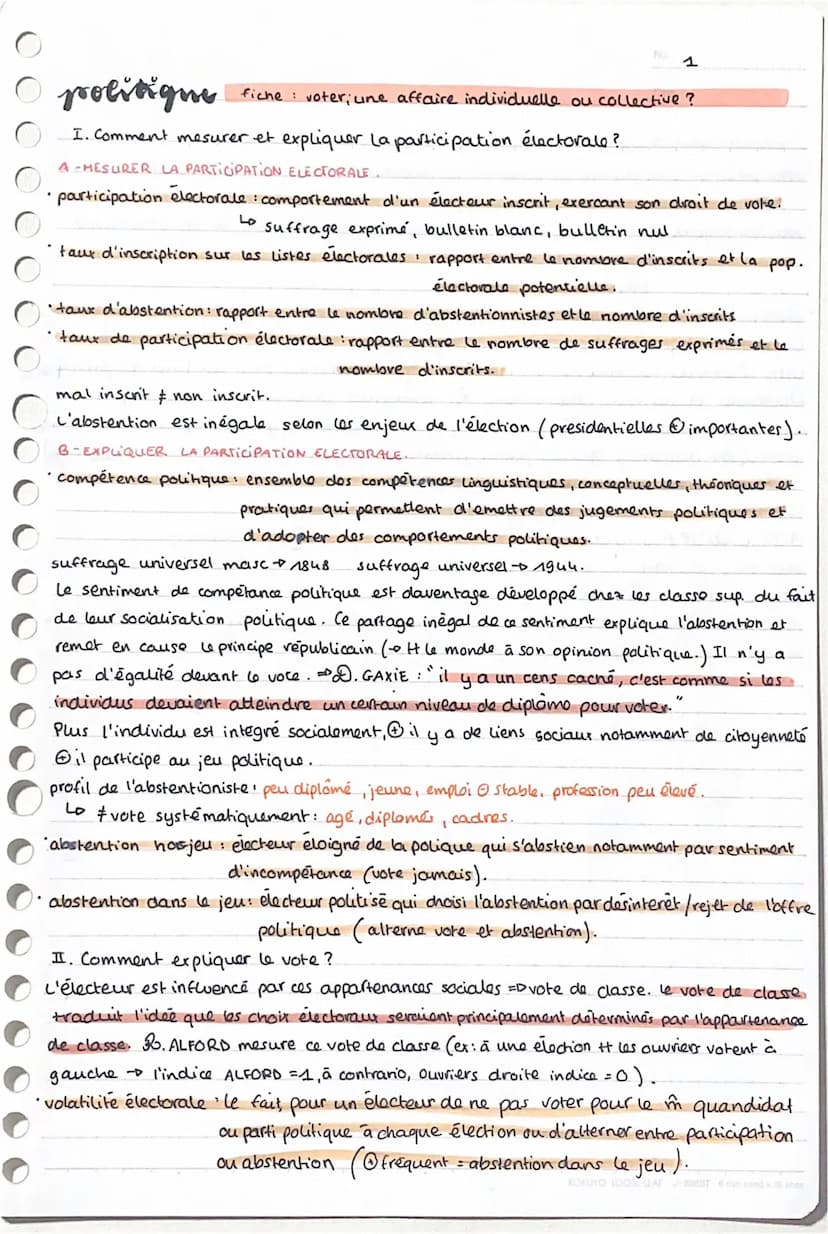 1
politique fiche : voter, une affaire individuelle ou collective ?
I. Comment mesurer et expliquer la participation électorale ?
A - MESURER LA PARTICIPATION ELECTORALE.
· participation électorale : comportement d'un électeur inscrit, exercant son droit de vote.
↳ suffrage exprimé, bulletin blanc, bulletin nul
· taux d'inscription sur les listes électorales : rapport entre le nombre d'inscrits et la pop.
électorale potentielle.
· taux d'abstention : rapport entre le nombre d'abstentionnistes et le nombre d'inscrits
· taux de participation électorale : rapport entre le nombre de suffrages exprimés et le
nombre d'inscrits.
mal inscrit ≠ non inscrit.
L'abstention est inégale selon les enjeux de l'élection (presidentielles ⊕ importantes).
B - EXPLIQUER LA PARTICIPATION ELECTORALE.
· compétence politique : ensemble des compétences linguistiques, conceptuelles, théoriques et
pratiques qui permettent d'emettre des jugements politiques et
d'adopter des comportements politiques.
suffrage universel masc → 1848 suffrage universel → 1944.
Le sentiment de compétance politique est daventage développé chez les classe sup. du fait
de leur socialisation politique. Ce partage inégal de ce sentiment explique l'abstention et
remet en cause le principe républicain (→ tt le monde à son opinion politique.) Il n'y a
pas d'égalité devant le vote. ⇒ D. GAXIE : "il y a un cens caché, c'est comme si les
individus devaient atteindre un certain niveau de diplôme pour voter."
Plus l'individu est integré socialement, ⊕ il y a de liens sociaux notamment de citoyenneté
⊕ il participe au jeu politique.
profil de l'abstentioniste : peu diplômé, jeune, emploi ⊖ stable, profession peu élevé.
↳ ≠ vote systématiquement : agé, diplomés, cadres.
· abstention horsjeu : électeur éloigné de la polique qui s'abstien notamment par sentiment
d'incompétance (vote jamais).
· abstention dans le jeu : électeur politisé qui choisi l'abstention par désinterêt / rejet de l'offre
politique (alterne vote et abstention).
II. Comment expliquer le vote ?
L'électeur est influencé par ces appartenances sociales ⇒ vote de classe. Le vote de classe
traduit l'idée que les choix électoraux seraient principalement déterminés par l'appartenance
de classe. R. ALFORD mesure ce vote de classe (ex : à une élection tt les ouvriers votent à
gauche → l'indice ALFORD = 1, à contrario, ouvriers droite indice = 0).
· volatilité électorale : le fait, pour un électeur de ne pas voter pour le m̂ quandidat
ou parti politique à chaque élection ou d'alterner entre participation
ou abstention (⊕ fréquent = abstention dans le jeu).